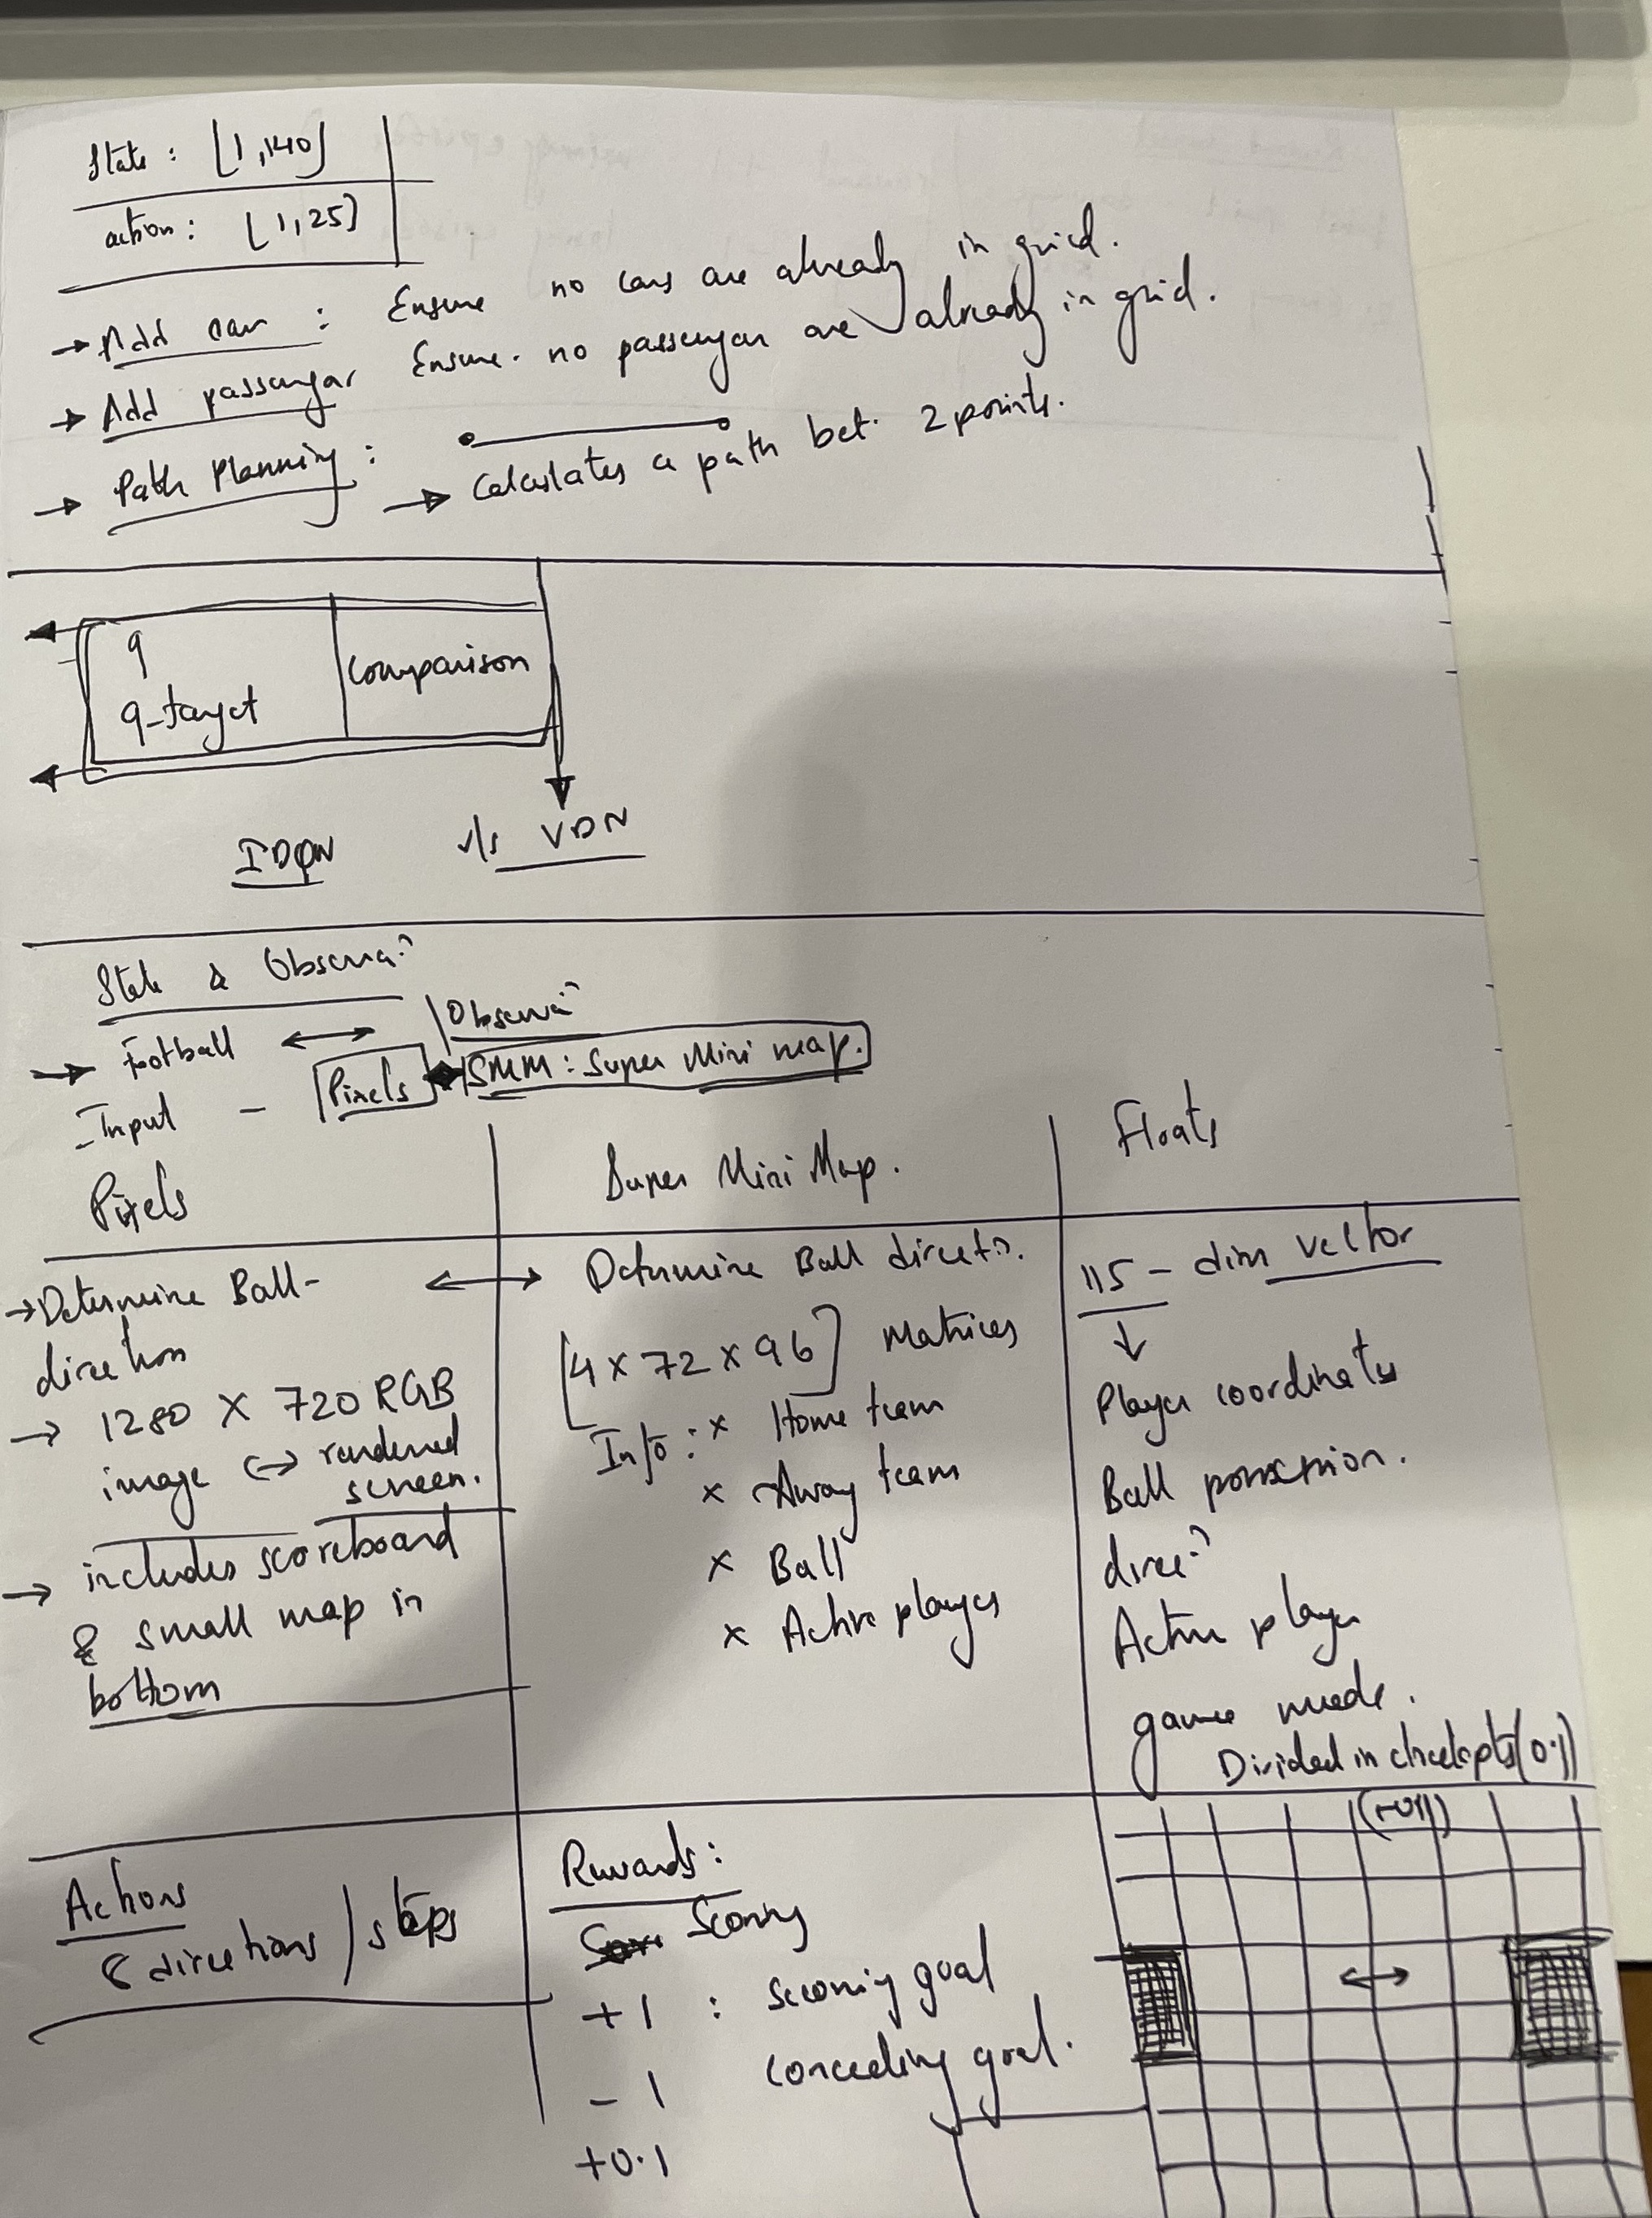 State : [1,140]
action : [1,25]
→ Add car : Ensure no cars are already in grid.
→ Add passengar Ensure no passengar are already in grid.
→ Path Planning :
→ Calculates a path bet. 2 points.
q
q-target
comparison
IDQN v/s VDN
State & Observaⁿ
→ Football ↔
Observaⁿ
Input - Pixels SMM : Super Mini map.
Pixels
Super Mini Map.
Floats
→ Determine Ball-
direction
→ 1280 X 720 RGB
image ↔ rendered
screen.
→ includes scoreboard
& small map in
bottom
↔ Determine Ball directⁿ.
[4 x 72 x 96] Matrices
Info : x Home team
x Away team
x Ball
x Active players
115 - dim vector
↓
Player coordinates
Ball possession.
direcⁿ
Active player
game mode.
Divided in checkpts (0.1)
Actions
8 directions / steps
Rewards :
Scoring
+1 : scoring goal
-1 conceding goal.
+0.1